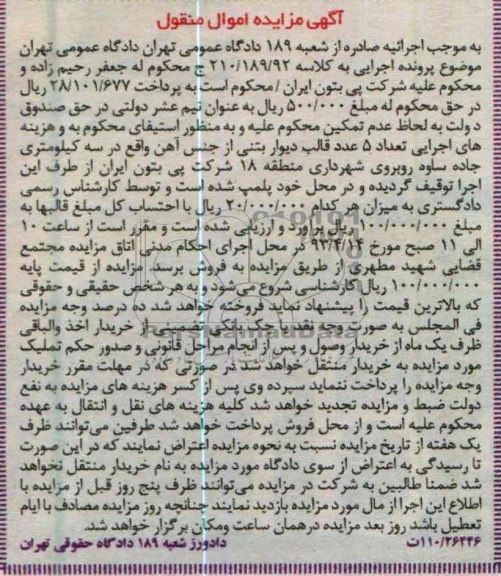 آگهی مزایده اموال منقول
به موجب اجرائیه صادره از شعبه ۱۸۹ دادگاه عمومی تهران دادگاه عمومی تهران
موضوع پرونده اجرایی به کلاسه ۲۱۰/۱۸۹/۹۲ ج محکوم له جعفر رحیم زاده و
محکوم علیه شرکت پی بتون ایران / محکوم است به پرداخت ۲۸/۱۰۱/۶۷۷ ریال
در حق محکوم له مبلغ ۵۰۰/۰۰۰ ریال به عنوان نیم عشر دولتی در حق صندوق
دولت به لحاظ عدم تمکین محکوم علیه و به منظور استیفای محکوم به و هزینه
های اجرایی تعداد ۵ عدد قالب دیوار بتنی از جنس آهن واقع در سه کیلومتری
جاده ساوه روبروی شهرداری منطقه ۱۸ شرکت پی بتون ایران از طرف این
اجرا توقیف گردیده و در محل خود پلمپ شده است و توسط کارشناس رسمی
دادگستری به میزان هر کدام ۲۰/۰۰۰/۰۰۰ ریال با احتساب کل مبلغ قالبها به
مبلغ ۱۰۰/۰۰۰/۰۰۰ ریال برآورد و ارزیابی شده است و مقرر است از ساعت ۱۰
الی ۱۱ صبح مورخ ۹۳/۴/۱۴ در محل اجرای احکام مدنی اتاق مزایده مجتمع
قضایی شهید مطهری از طریق مزایده به فروش برسد. مزایده از قیمت پایه
۱۰۰/۰۰۰/۰۰۰ ریال کارشناسی شروع می‌شود و به هر شخص حقیقی و حقوقی
که بالاترین قیمت را پیشنهاد نماید فروخته خواهد شد ده درصد وجه مزایده
فی المجلس به صورت وجه نقد یا چک بانکی تضمینی از خریدار اخذ والباقی
ظرف یک ماه از خریدار وصول و پس از انجام مراحل قانونی و صدور حکم تملیک
مورد مزایده به خریدار منتقل خواهد شد در صورتی که در مهلت مقرر خریدار
وجه مزایده را پرداخت ننماید سپرده وی پس از کسر هزینه های مزایده به نفع
دولت ضبط و مزایده تجدید خواهد شد کلیه هزینه های نقل و انتقال به عهده
محکوم علیه است و از محل فروش پرداخت خواهد شد طرفین می‌توانند ظرف
یک هفته از تاریخ مزایده نسبت به نحوه مزایده اعتراض نمایند که در این صورت
تا رسیدگی به اعتراض از سوی دادگاه مورد مزایده به نام خریدار منتقل نخواهد
شد ضمنا طالبین به شرکت در مزایده می‌توانند ظرف پنج روز قبل از مزایده با
اطلاع این اجرا از مال مورد مزایده بازدید نمایند چنانچه روز مزایده مصادف با ایام
تعطیل باشد روز بعد مزایده درهمان ساعت ومکان برگزار خواهد شد.
۱۱۰/۲۶۲۴۶ت دادورز شعبه ۱۸۹ دادگاه حقوقی تهران